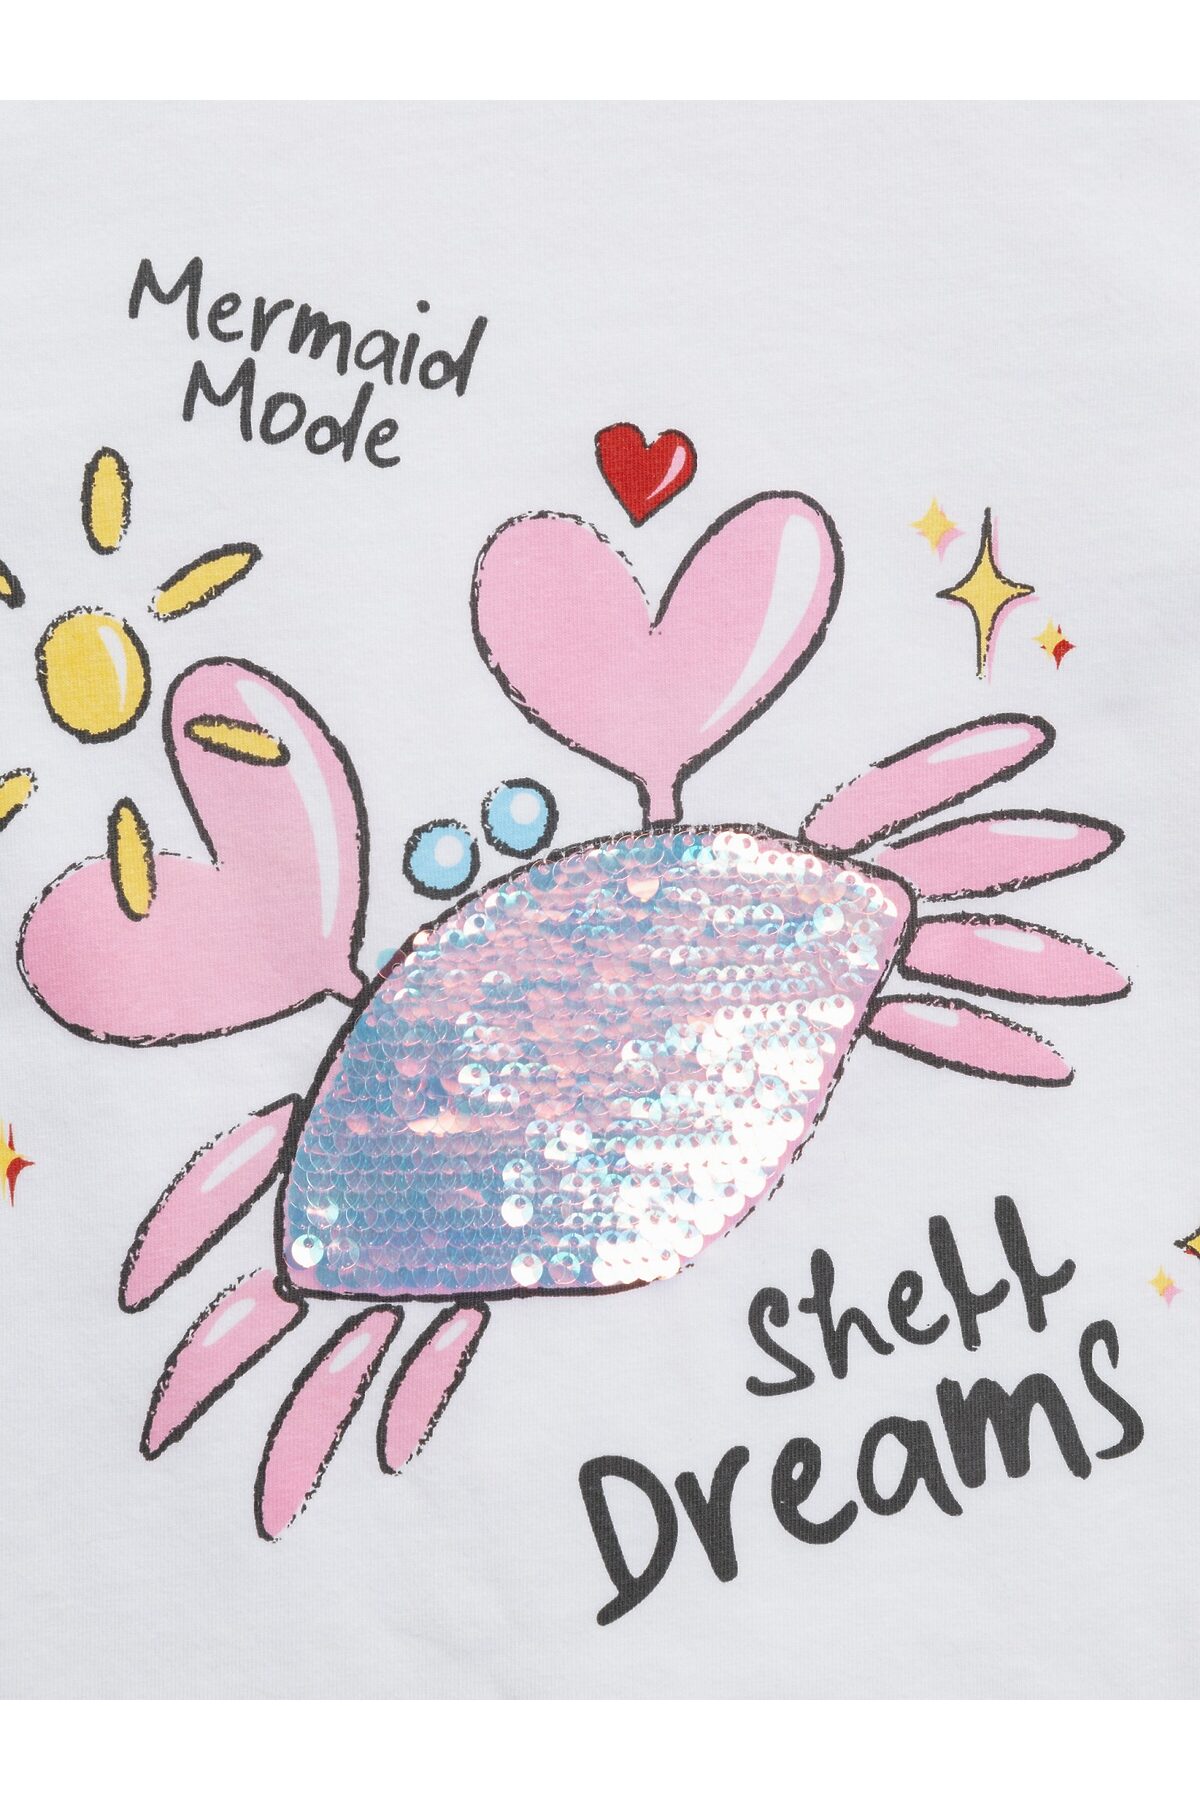 Mermaid
Mode
Shell
Dreams